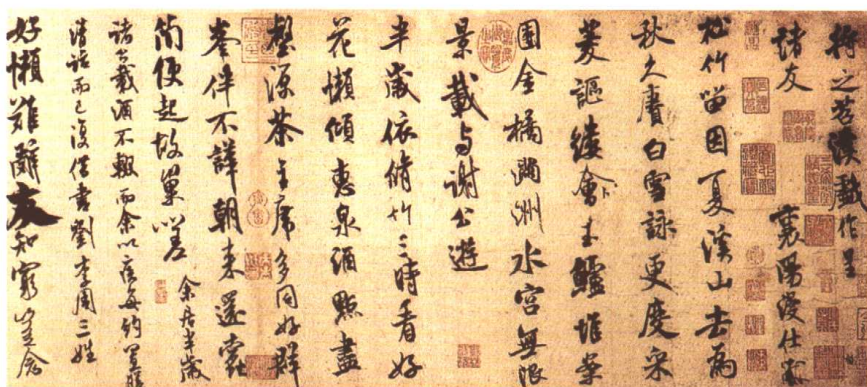 将之苕溪戏作呈
诸友 襄阳漫仕黻
松竹留因夏溪山去为
秋久赓白雪咏更度采
菱讴缕会(玉)鲈堆案
團金橘满洲水宫無限
景載与谢公遊
半歲依脩竹三時看好
花懶傾惠泉酒點盡
壑源茶主席多同好群
峯伴不譁朝来還蠹
简便起故巢嗟
余居半歲
諸公載酒不輟而余以疾每約置膳
清話而已復借書劉李周三姓
好懶難辭友知窮豈念